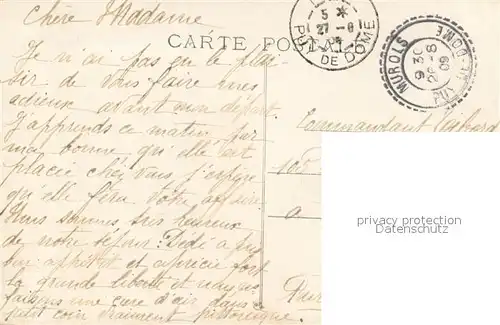 Chère Madame
CARTE POSTALE
5 *
27-8
PUY DE DOME
MUROLS
9 30
26-8
09
PUY-DE-DOME
Je n'ai pas eu le plai-
sir de vous faire mes
adieux avant mon départ.
J'apprends ce matin par
ma bonne qu'elle est
placée chez vous j'espère
qu'elle fera votre affaire.
Nous sommes très heureux
de notre séjour. Dédé a
appétit et apprécie fort
la grande liberté et nous
faisons une cure d'air dans ce
petit coin vraiment pittoresque.
Commandant
privacy protection
AK-Ansichtskarten.de